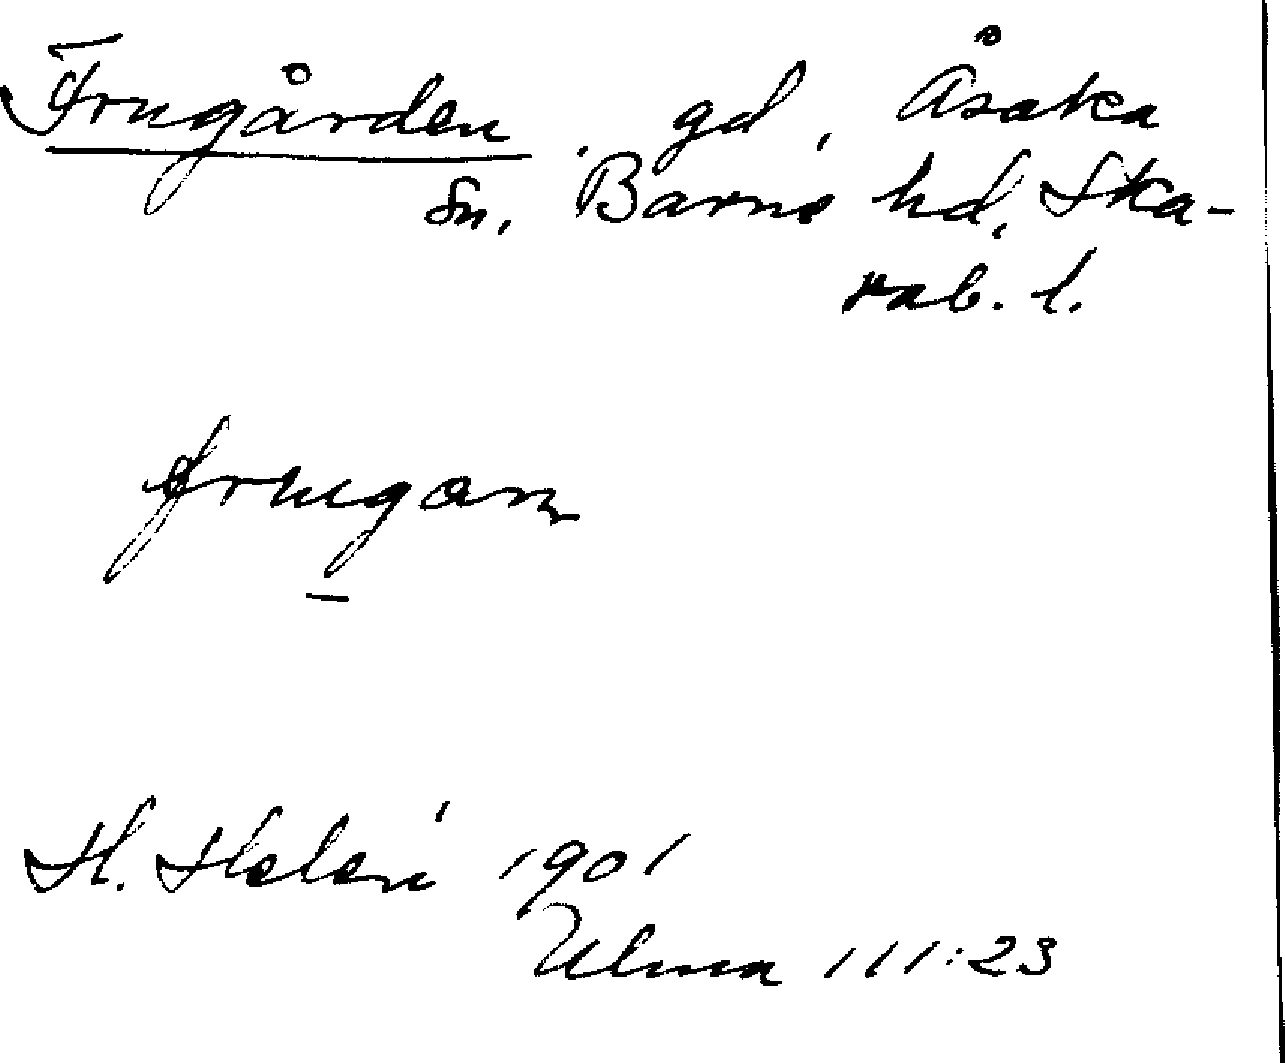 Frugården gd, Åsaka
sn, Barne hd, Ska-
rab. l.
frugan
H. Helen 1901
Ulma 111:23